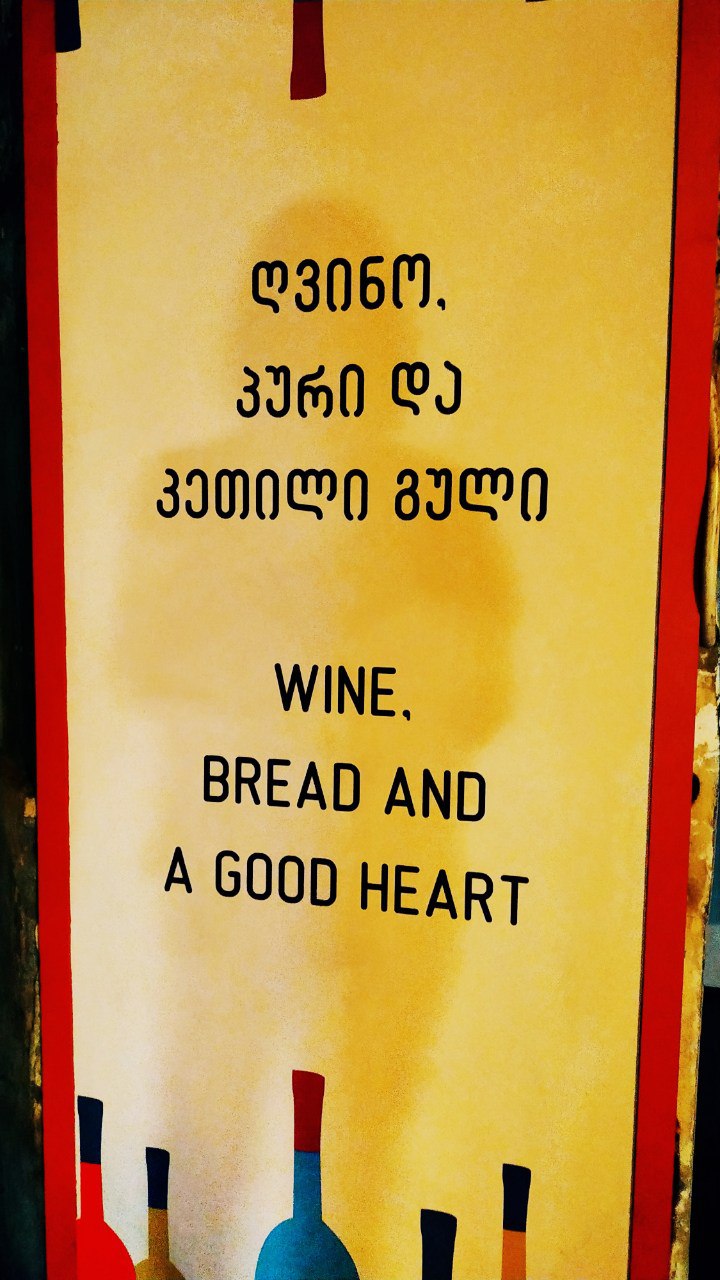 ღვინო,
პური და
კეთილი გული
WINE,
BREAD AND
A GOOD HEART